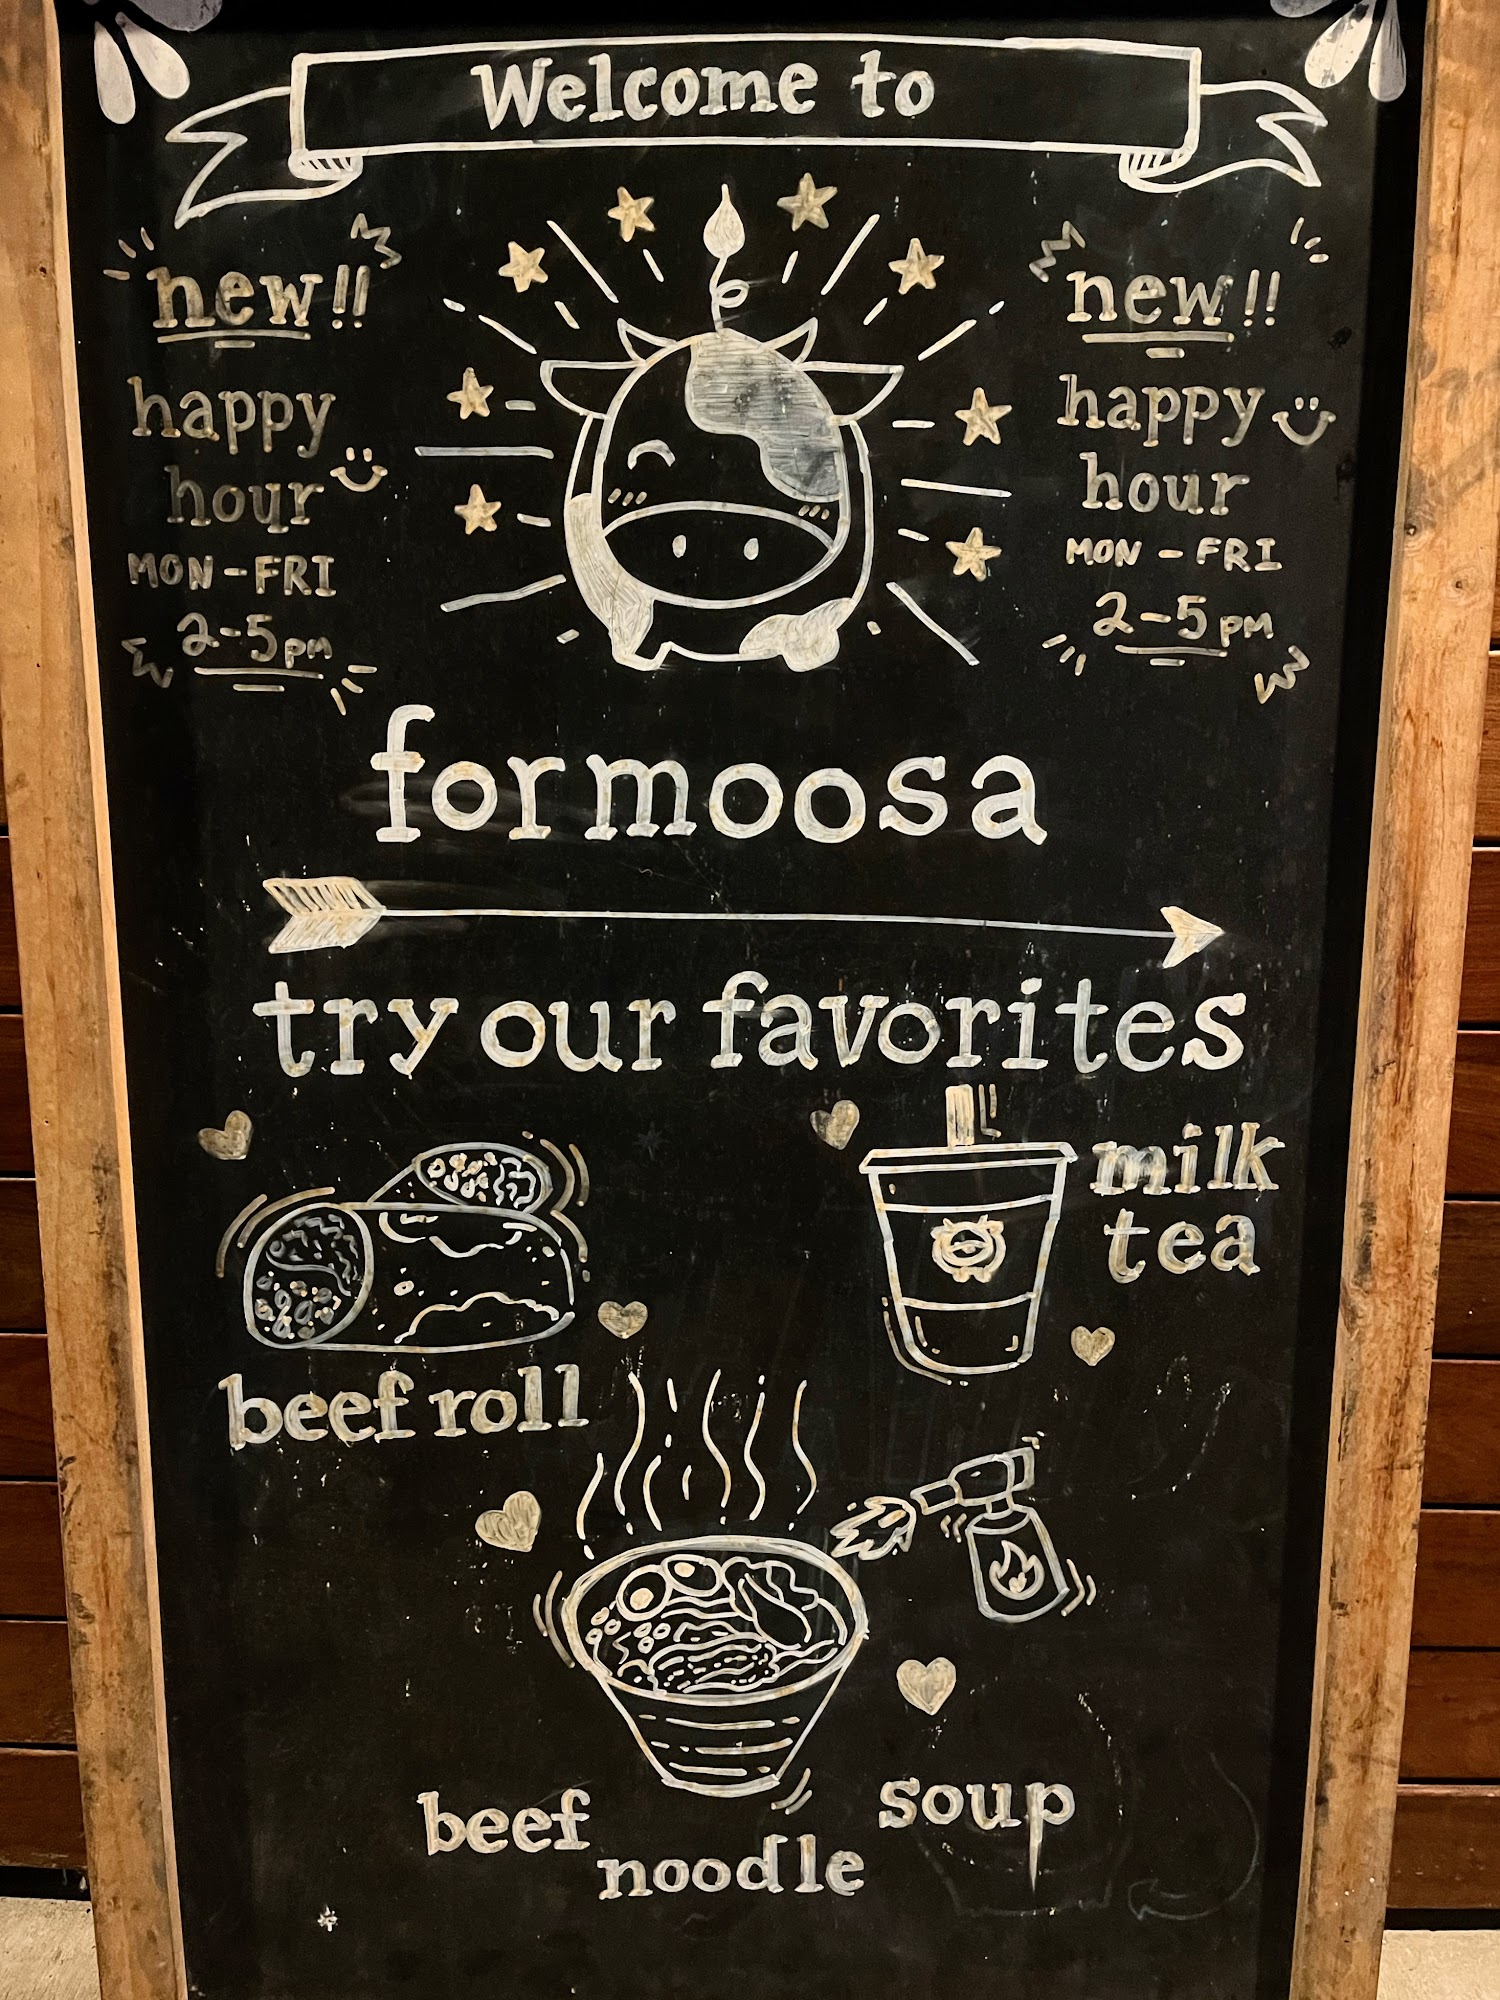 Welcome to
new!!
happy
hour
MON-FRI
2-5pm
new!!
happy
hour
MON - FRI
2-5pm
formoosa
try our favorites
beef roll
milk
tea
beef
noodle
soup